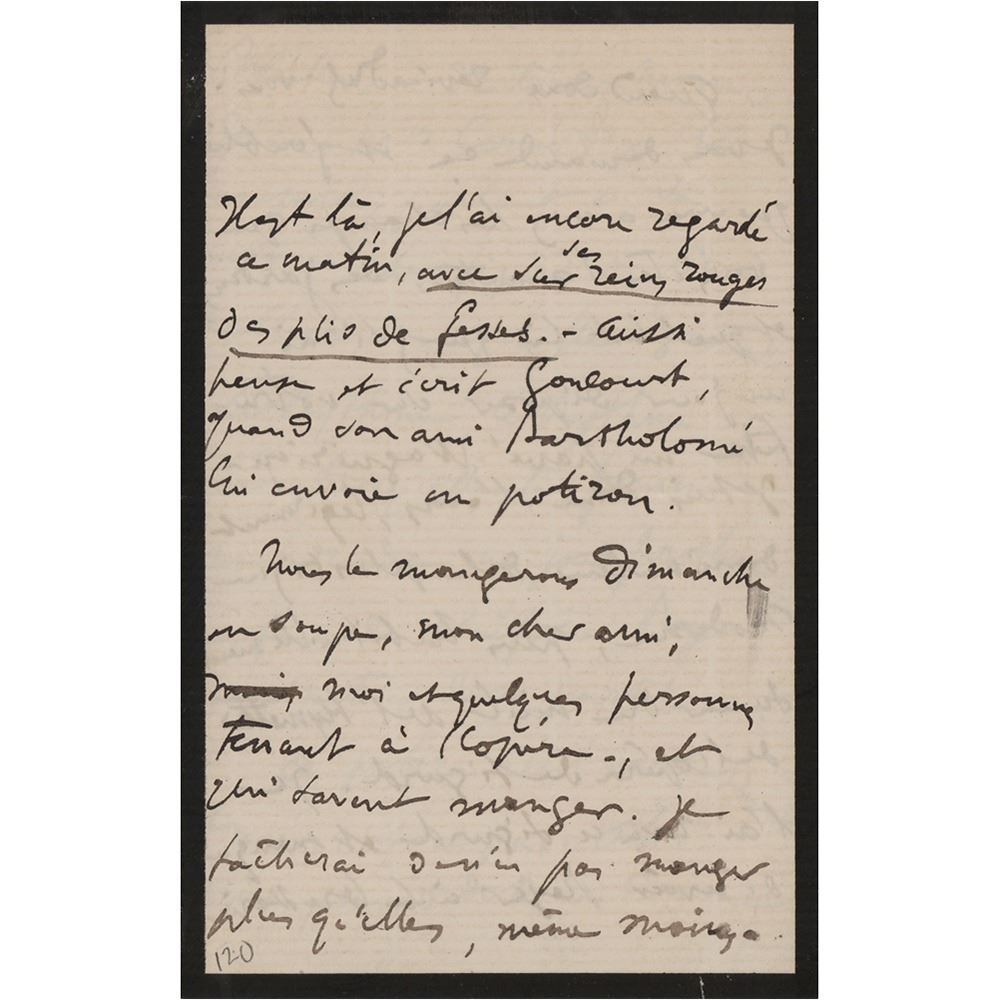 Il est là, je l'ai encore regardé
ce matin, avec ses reins rouges
des plis de fesses. - Aussi
pense et écrit Goncourt,
quand son ami Bartholomé
lui envoie un potiron.
Nous le mangerons Dimanche
en soupe, mon cher ami,
moi et quelques personnes
tenant à l'opéra -, et
qui savent manger. je
tâcherai de n'en pas manger
plus qu'elles, même moins.
120